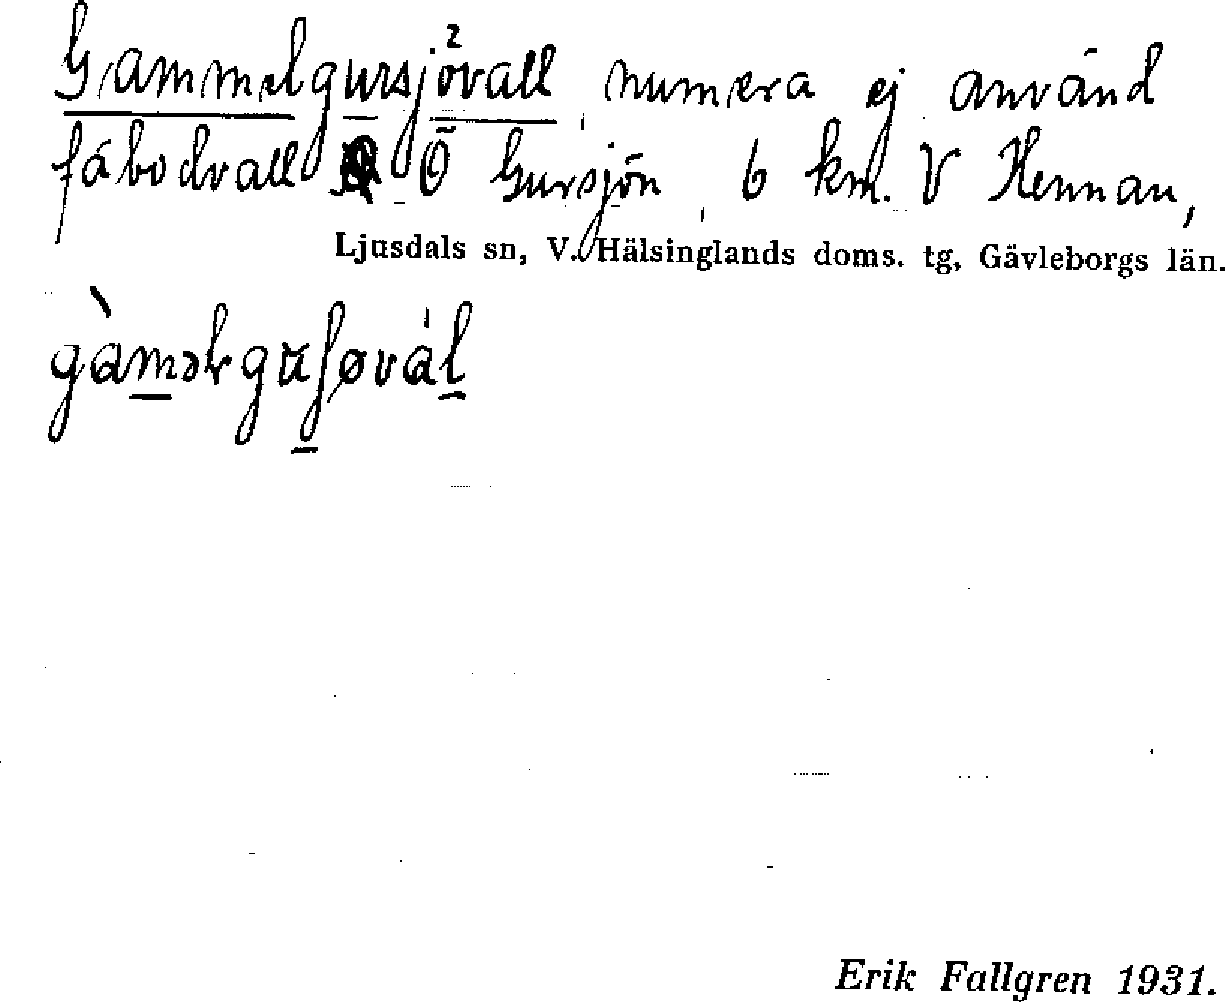 Gammelgursjövall, numera ej använd
fäbodvall Ö Gursjön, 6 km. V Hennan,
Ljusdals sn, V. Hälsinglands doms. tg, Gävleborgs län.
Erik Fallgren 1931.